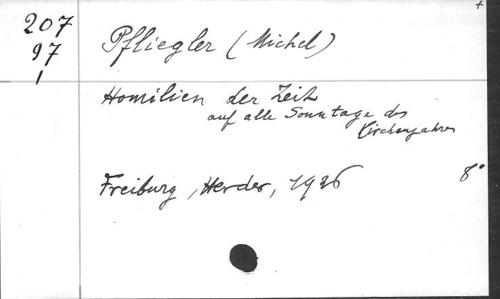 207
97
1
+
Pfliegler (Michel)
Homilien der Zeit
auf alle Sonntage des
Kirchenjahres
Freiburg, Herder, 1926 8°